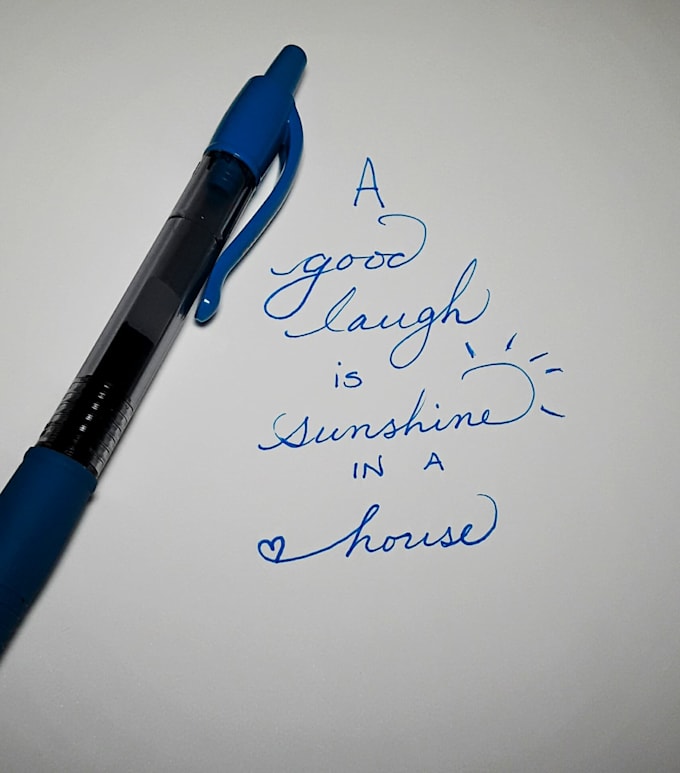 A
good
laugh
is
sunshine
IN A
house